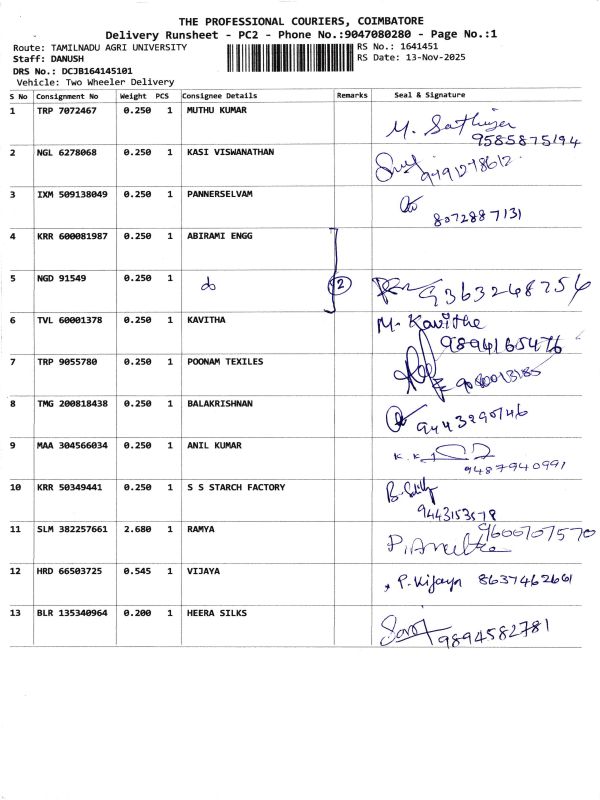 THE PROFESSIONAL COURIERS, COIMBATORE
Delivery Runsheet - PC2 - Phone No.:9047080280 - Page No.:1
Route: TAMILNADU AGRI UNIVERSITY RS No.: 1641451
Staff: DANUSH RS Date: 13-Nov-2025
DRS No.: DCJB164145101
Vehicle: Two Wheeler Delivery
S No Consignment No Weight PCS Consignee Details Remarks Seal & Signature
1 TRP 7072467 0.250 1 MUTHU KUMAR
M. Sathiya
9585875194
2 NGL 6278068 0.250 1 KASI VISWANATHAN
3 IXM 509138049 0.250 1 PANNERSELVAM
8072887131
4 KRR 600081987 0.250 1 ABIRAMI ENGG
5 NGD 91549 0.250 1 do 2 9363248756
6 TVL 60001378 0.250 1 KAVITHA M. Kavitha
9894165476
7 TRP 9055780 0.250 1 POONAM TEXILES
8 TMG 200818438 0.250 1 BALAKRISHNAN
9443290746
9 MAA 304566034 0.250 1 ANIL KUMAR
9487940991
10 KRR 50349441 0.250 1 S S STARCH FACTORY
9443153578
11 SLM 382257661 2.680 1 RAMYA 9600707570
12 HRD 66503725 0.545 1 VIJAYA P. Vijaya 8637462661
13 BLR 135340964 0.200 1 HEERA SILKS
9894582781